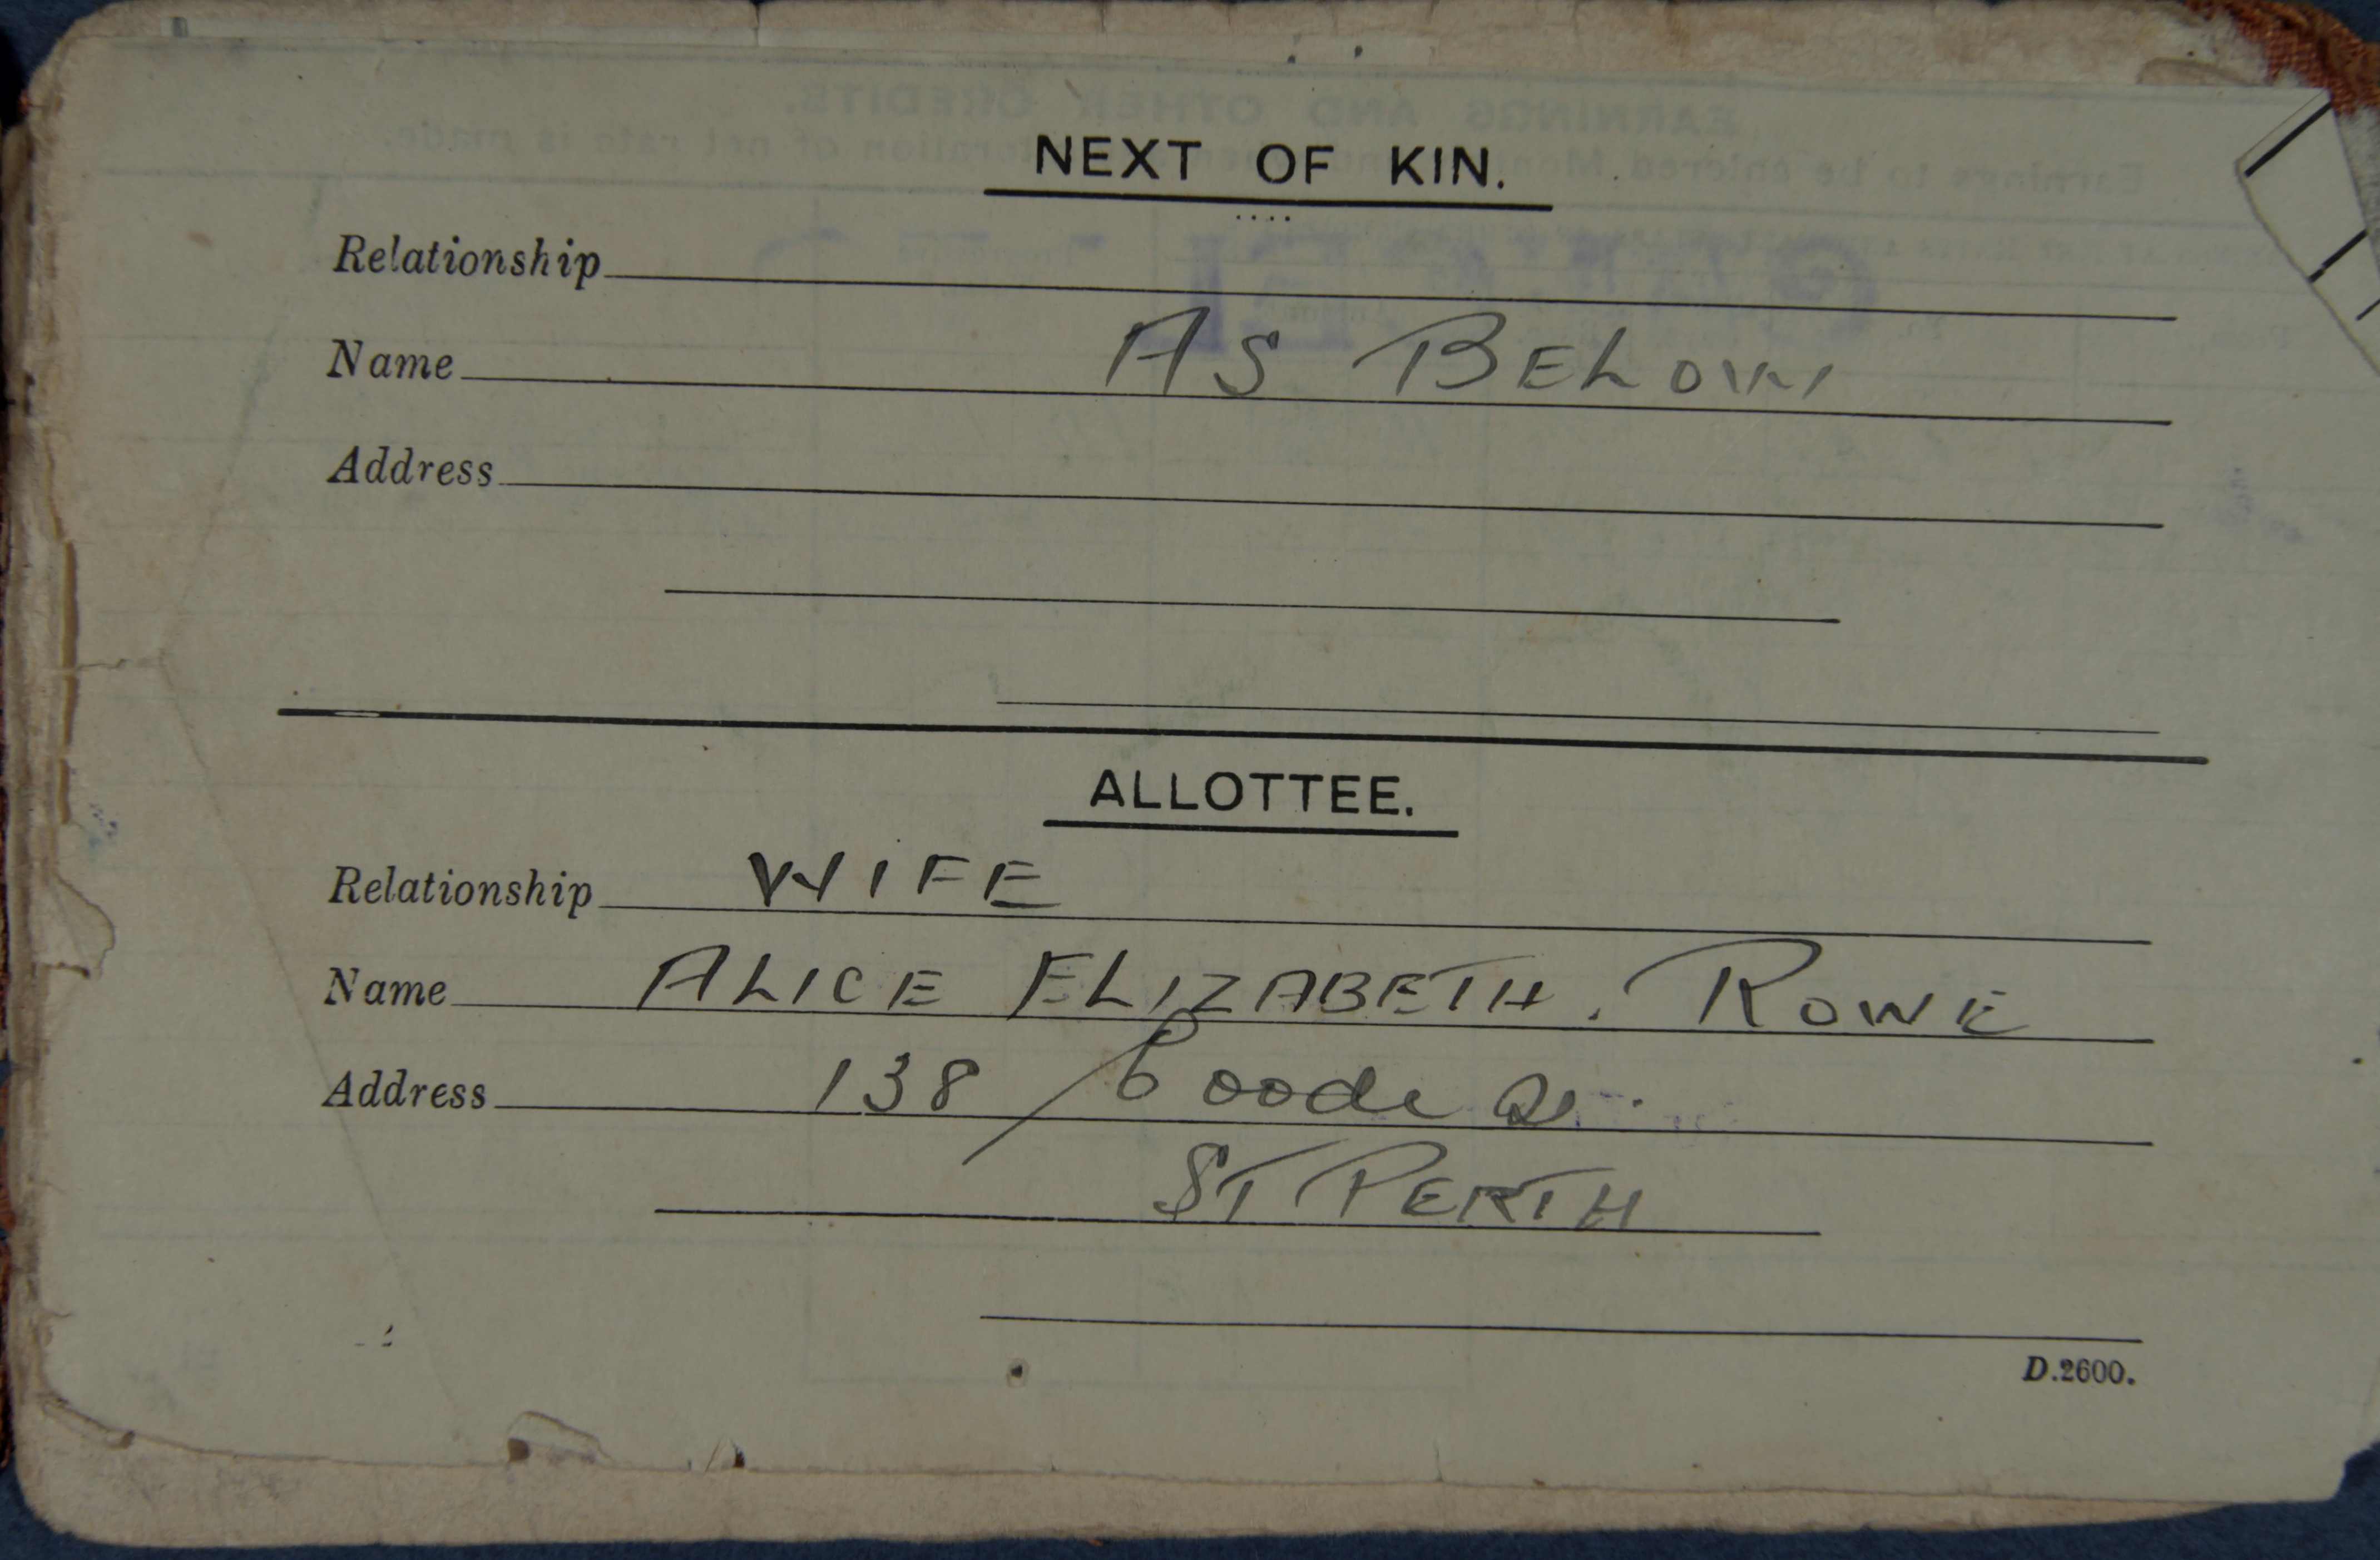 NEXT OF KIN.
Relationship
Name AS BELOW
Address
ALLOTTEE.
Relationship WIFE
Name ALICE ELIZABETH. ROWE
Address 138 Goode St.
ST PERTH
D.2600.